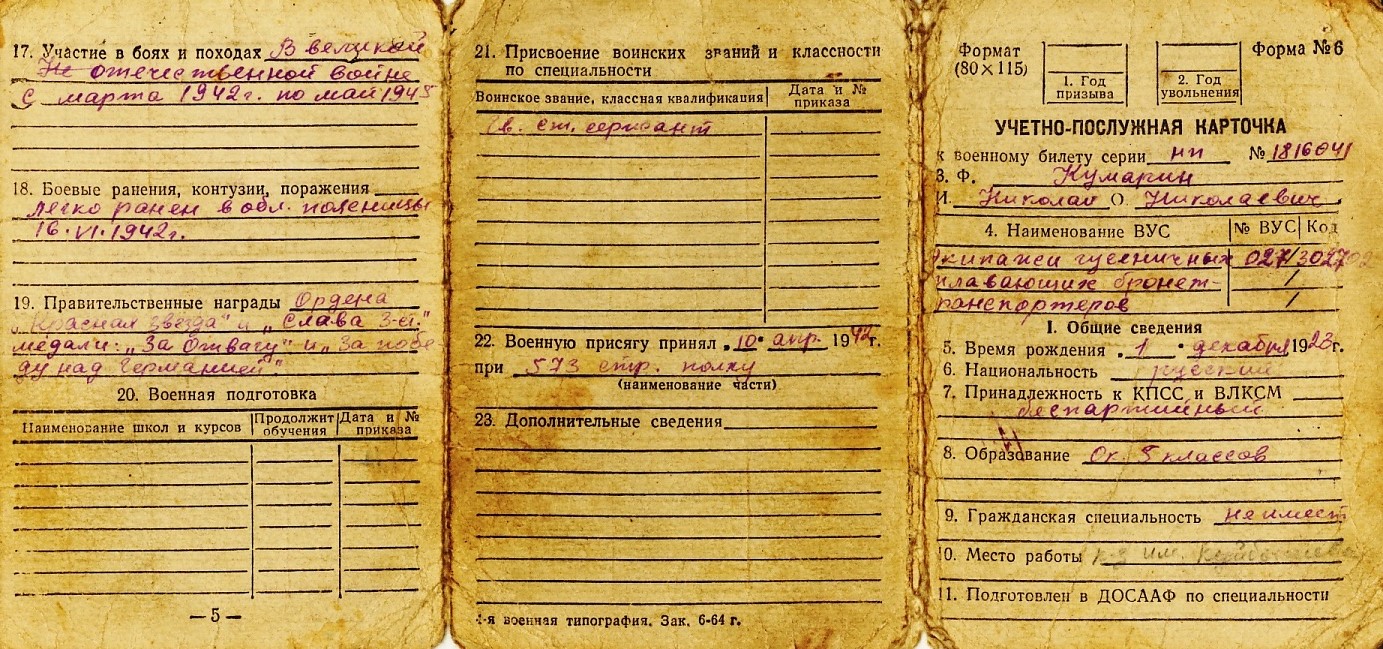 17. Участие в боях и походах В великой
Не отечественной войне
с марта 1942г. по май 1945
18. Боевые ранения, контузии, поражения
легко ранен в обл. поясницы
16.VI.1942г.
19. Правительственные награды Ордена
„Красная звезда" и „Слава 3-ст."
медали: „За Отвагу" и „За побе
ду над Германией"
20. Военная подготовка
Наименование школ и курсов | Продолжит обучения | Дата и № приказа
— 5 —
21. Присвоение воинских званий и классности
по специальности
Воинское звание, классная квалификация | Дата и № приказа
гв. ст. сержант
22. Военную присягу принял „10" апр. 1942г.
при 573 стр. полку
(наименование части)
23. Дополнительные сведения
4-я военная типография. Зак. 6-64 г.
Формат
(80×115)
1. Год
призыва
2. Год
увольнения
Форма №6
УЧЕТНО-ПОСЛУЖНАЯ КАРТОЧКА
к военному билету серии нп № 1816041
3. Ф. Кумарин
И. Николай О. Николаевич
4. Наименование ВУС | № ВУС | Код
Экипажи гусеничных 027/302702
плавающих бронет-
ранспортеров
I. Общие сведения
5. Время рождения „1" декабря 1923г.
6. Национальность русский
7. Принадлежность к КПСС и ВЛКСМ
беспартийный
8. Образование Ок. 5 классов
9. Гражданская специальность не имеет
10. Место работы к-з им. Куйбышева
11. Подготовлен в ДОСААФ по специальности